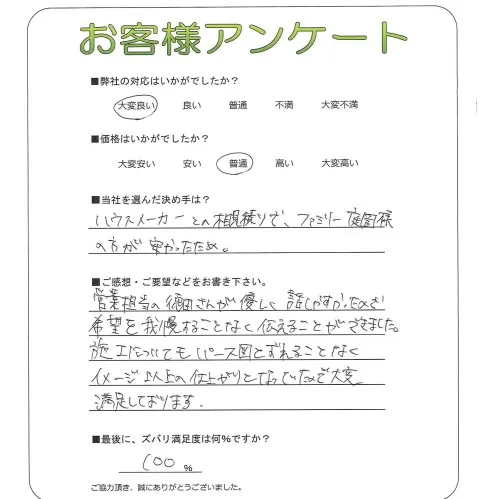 お客様アンケート
■弊社の対応はいかがでしたか?
大変良い 良い 普通 不満 大変不満
■価格はいかがでしたか?
大変安い 安い 普通 高い 大変高い
■当社を選んだ決め手は?
ハウスメーカーとの相見積りで、ファミリー庭園様
の方が安かったため。
■ご感想・ご要望などをお書き下さい。
営業担当の徳田さんが優しく話しやすかったので
希望を我慢することなく伝えることができました。
施工についてもパース図とずれることなく
イメージ以上の仕上がりとなっていたので大変
満足しております.
■最後に、ズバリ満足度は何%ですか?
100 %
ご協力頂き、誠にありがとうございました。